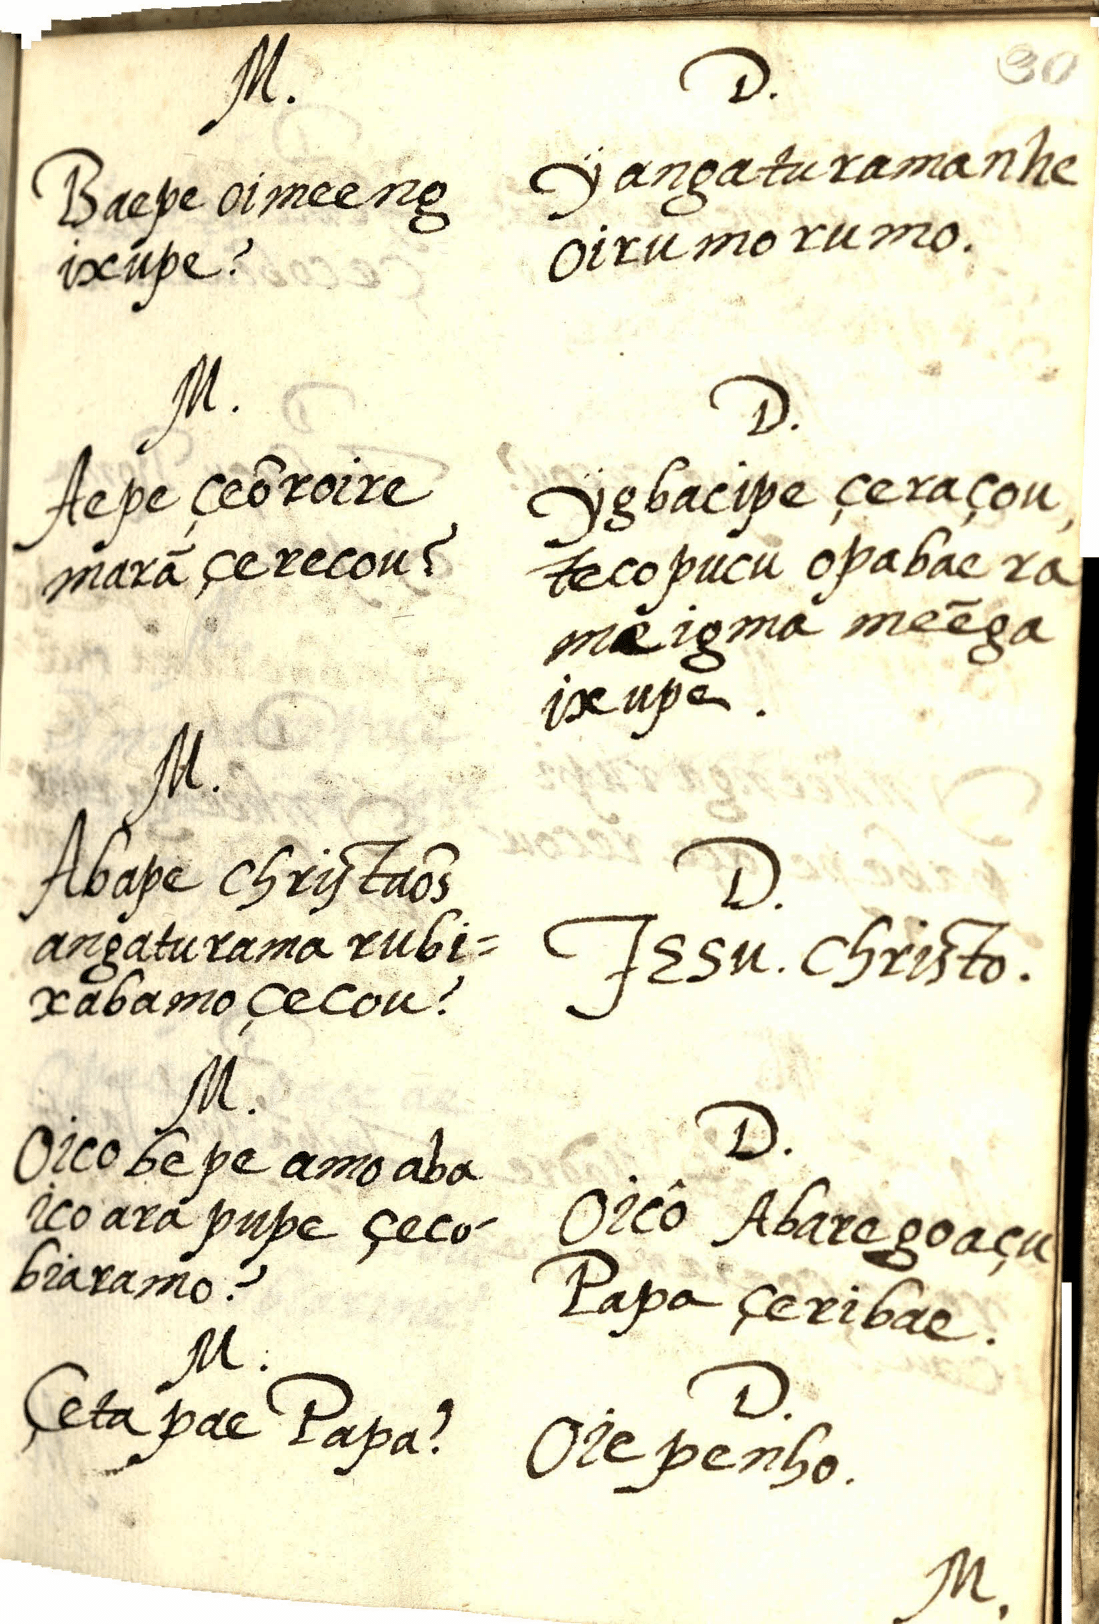 30
M.
Baepe oimeeng
ixupe?
D.
Ÿangaturamanhe
oirumorumo.
M.
Aepe çeõroire
marã çerecou?
D.
Ÿgbacipe çeraçou,
tecopucu opabaera
mẽigma meẽga
ixupe.
M.
Abape Christaõs
angaturama rubi=
xabamo çecou?
D.
Jesu. Christo.
M.
Oico bepe amo aba
ico ara pupe çeco-
biaramo?
D.
Oicô Abaregoaçu
Papa çeribae.
M.
Çeta pae Papa?
D.
Oiepenho.
M.